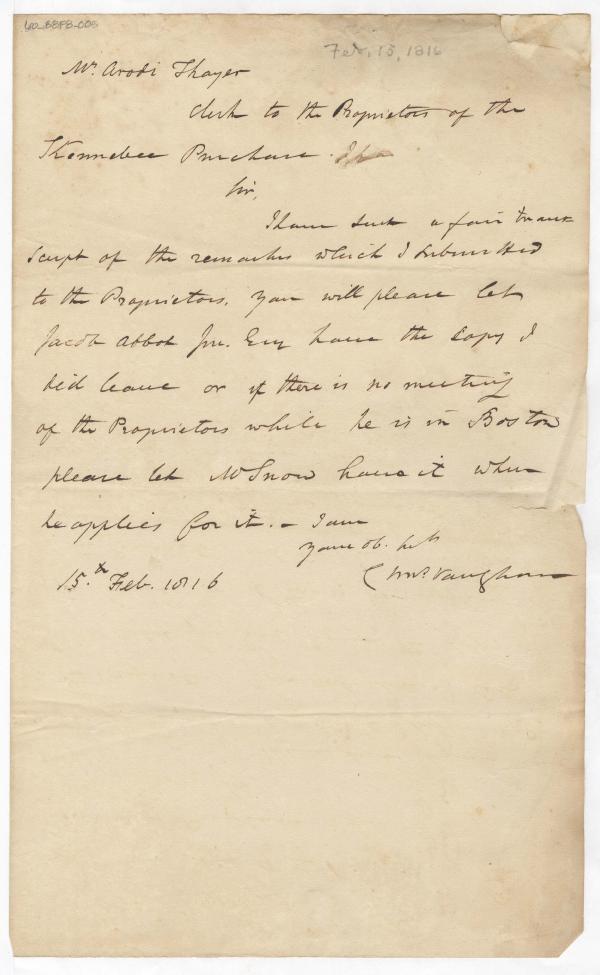 Feb. 15, 1816
Mr. Arodi Thayer
Clerk to the Proprietors of the
Kennebec Purchase.
Sir,
I have sent a fair tran
script of the remarks which I submitted
to the Proprietors. You will please let
Jacob Abbot Jnr. Esq have the copy I
did leave or if there is no meeting
of the Proprietors while he is in Boston
please let Mr Snow have it when
he applies for it. – I am
your ob. Sert
15.th Feb. 1816 Chas. Vaughan